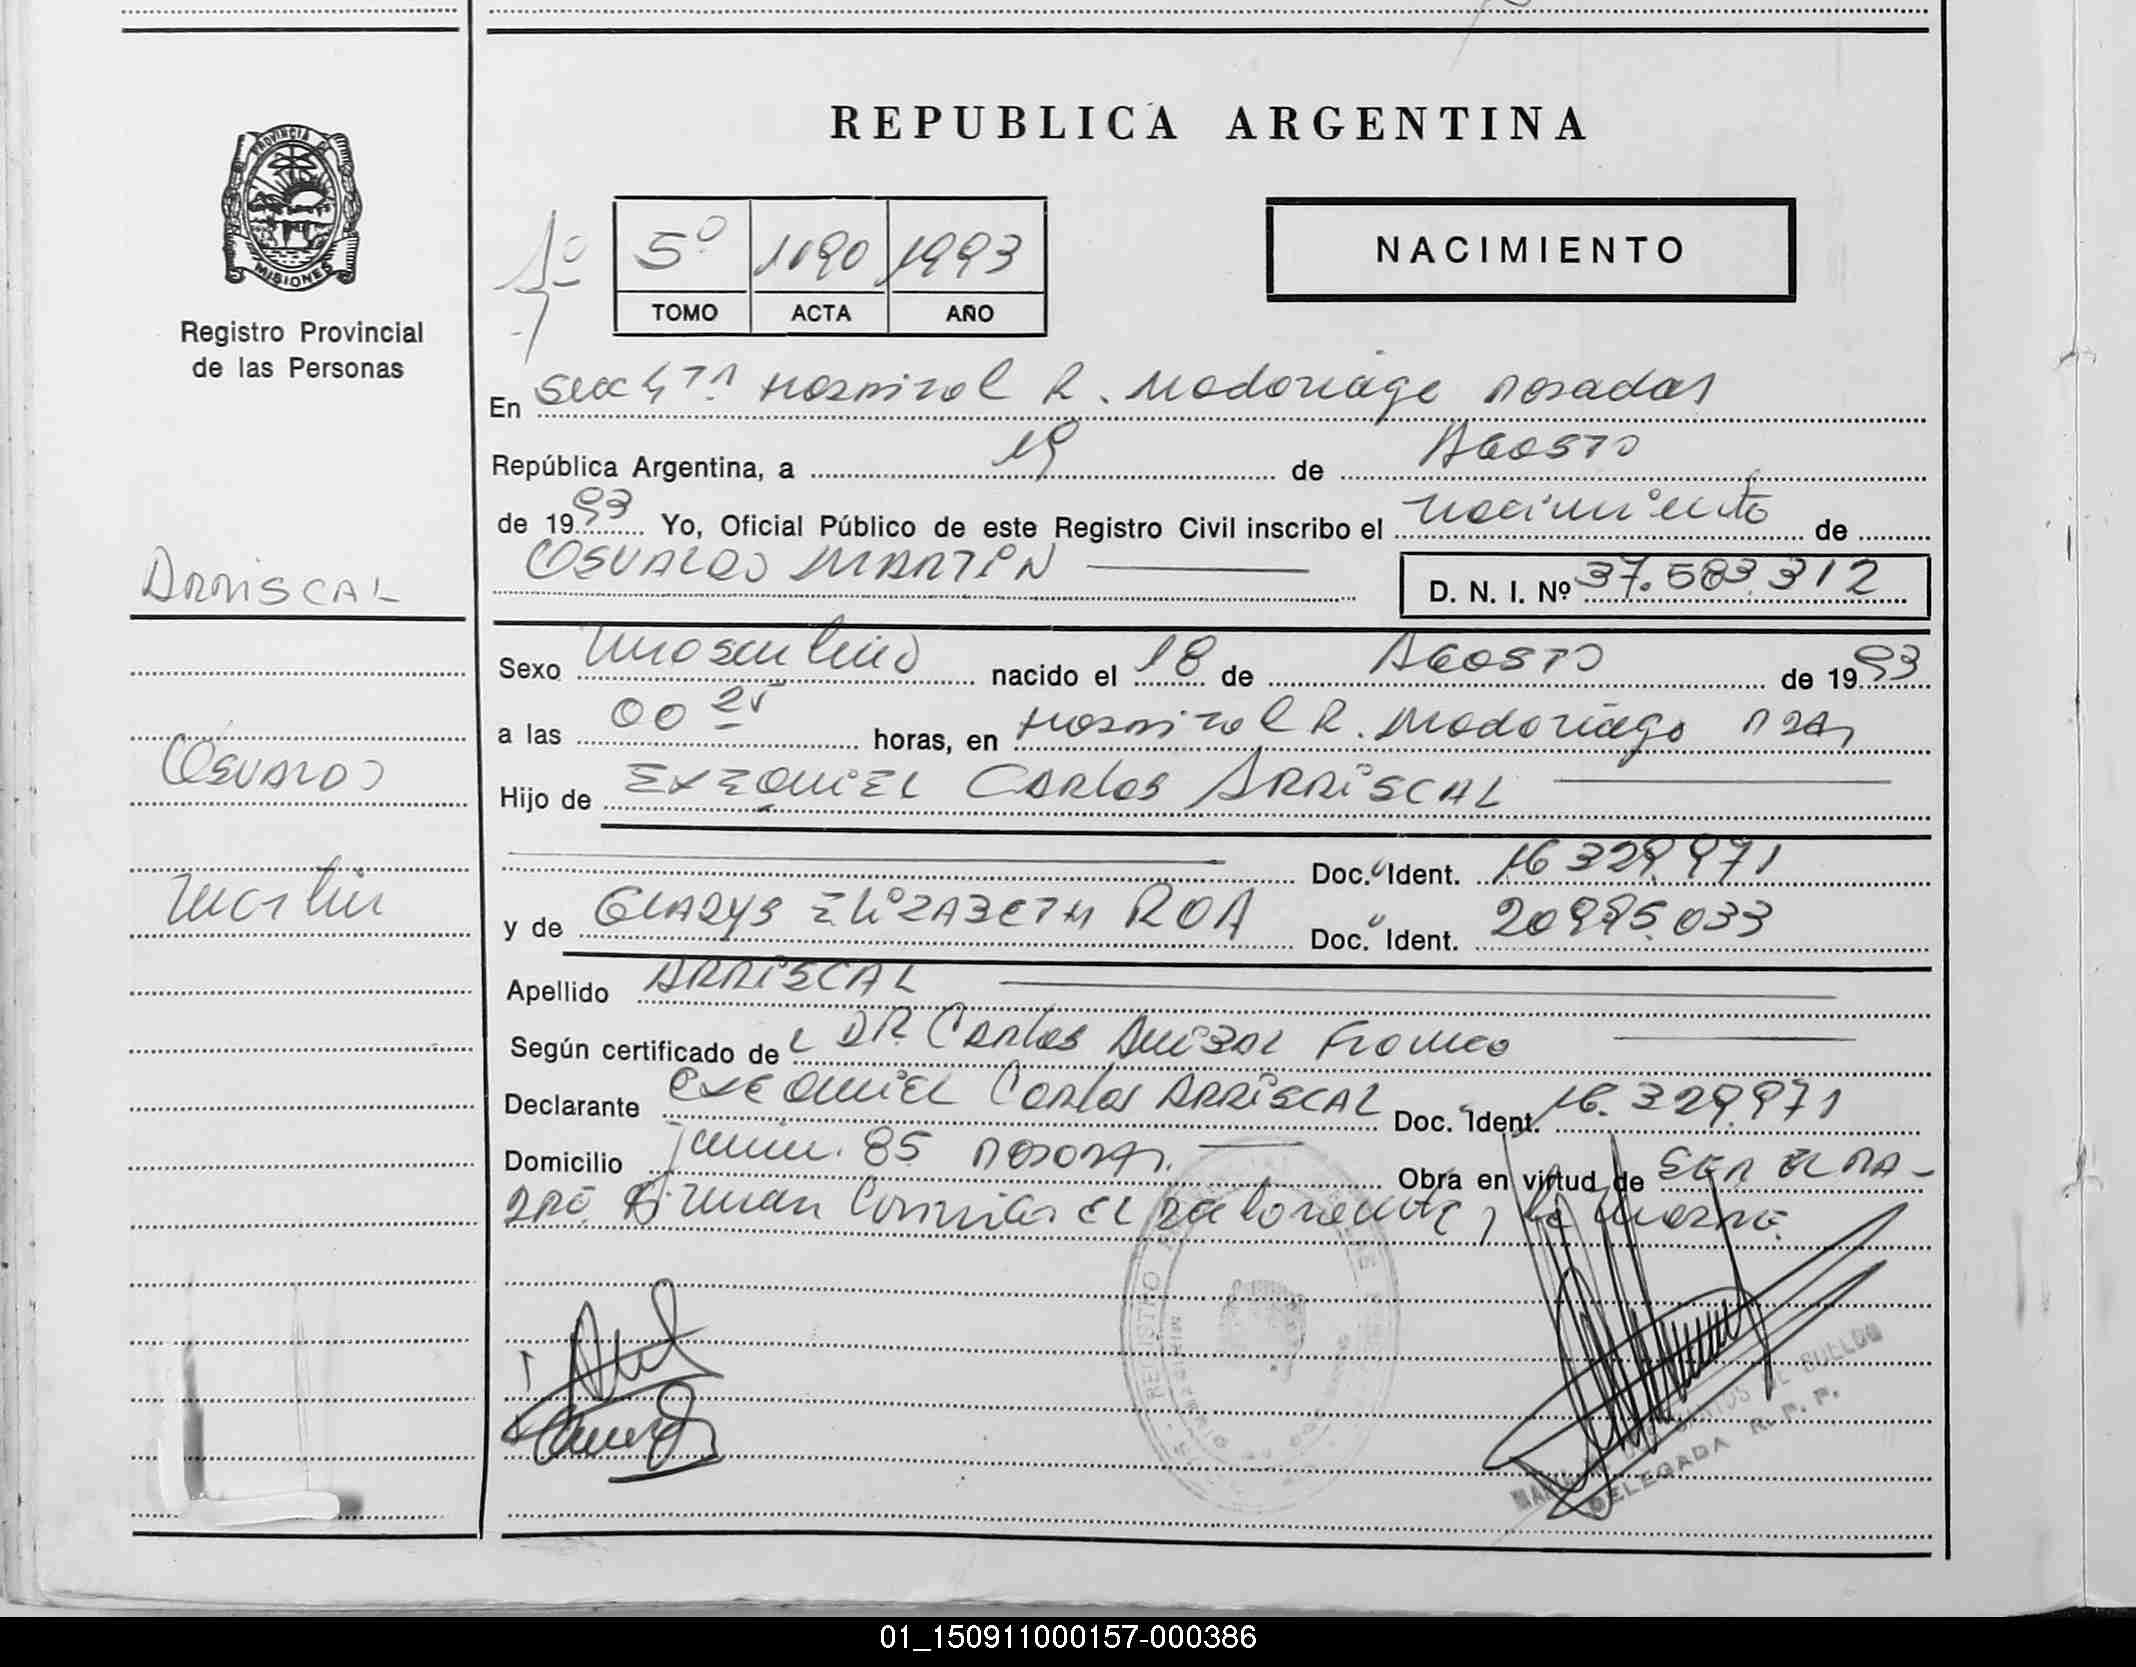 REPUBLICA ARGENTINA
PROVINCIA DE
MISIONES
Registro Provincial
de las Personas
1º 5º 1190 1993
TOMO ACTA AÑO
NACIMIENTO
En Secc 4ta Hospital R. Madariaga Posadas
República Argentina, a 19 de AGOSTO
de 1993 Yo, Oficial Público de este Registro Civil inscribo el nacimiento de
OSVALDO MARTIN
D. N. I. Nº 37.583.312
ARRISCAL
Osvaldo
Martin
Sexo masculino nacido el 18 de AGOSTO de 1993
a las 00 25 horas, en Hospital R. Madariaga Pdas
Hijo de EXEQUIEL CARLOS ARRISCAL
Doc. Ident. 16.329.971
y de GLADYS ELIZABETH ROA Doc. Ident. 20.995.033
Apellido ARRISCAL
Según certificado de L DR. Carlos Anibal Franco
Declarante EXEQUIEL Carlos ARRISCAL Doc. Ident. 16.329.971
Domicilio Junin. 85 Posadas. Obra en virtud de SER EL PA-
DRE. Firman Conmigo el declarante y la madre
REGISTRO
DELEGADA R. P. P.
01_150911000157-000386